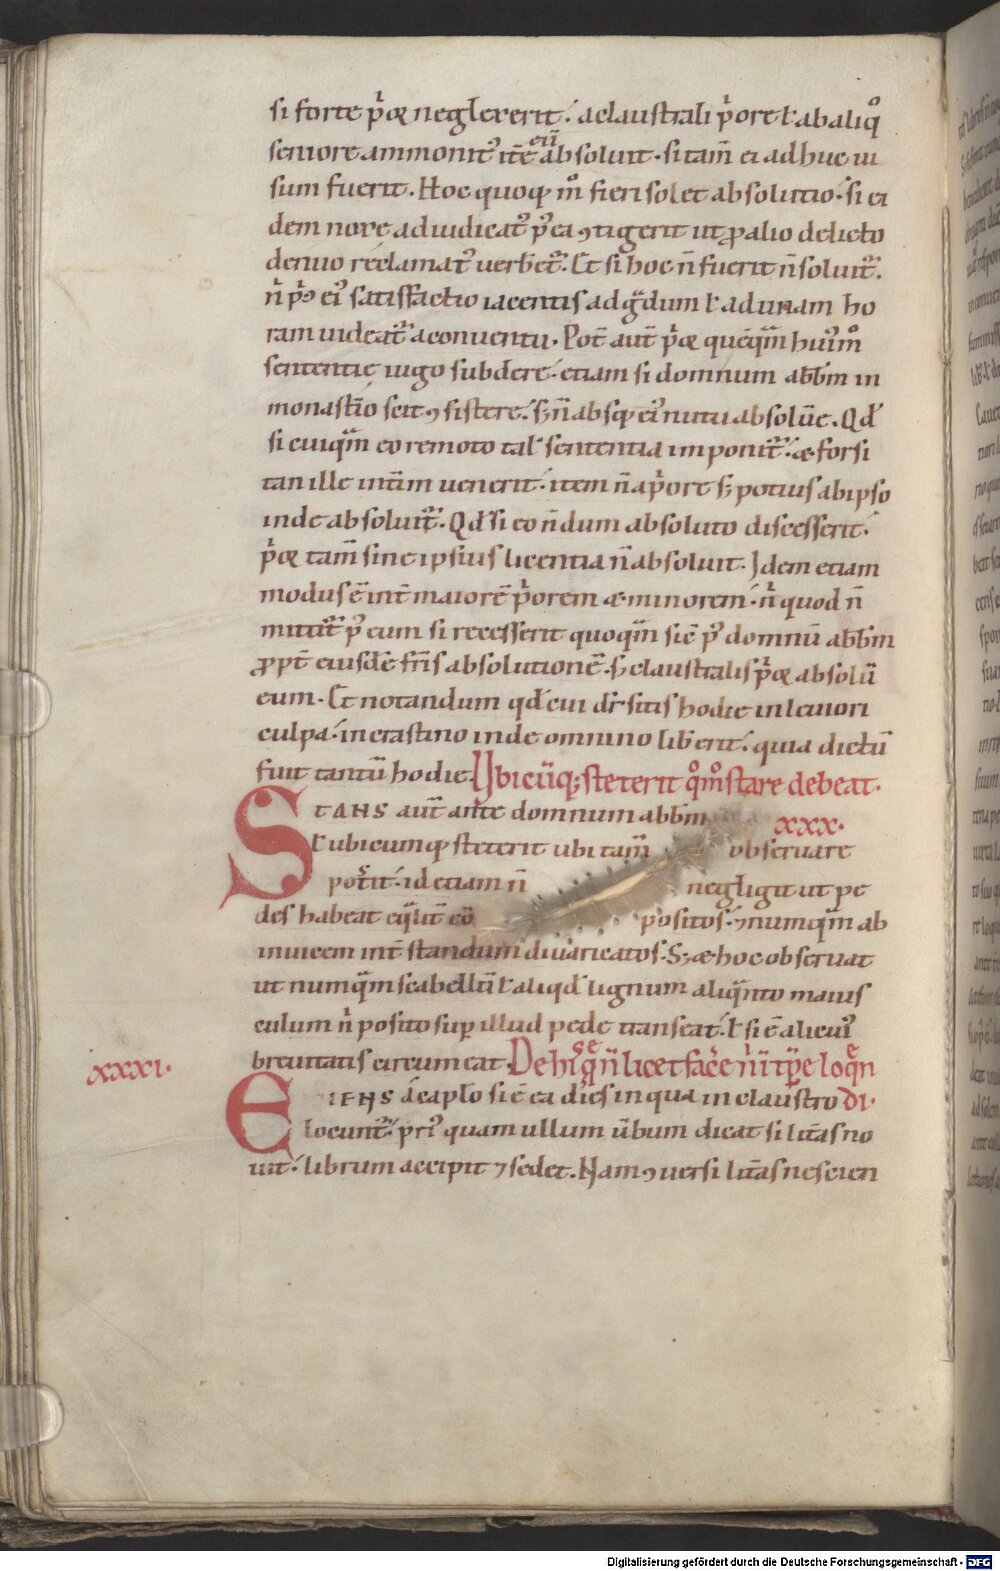 si forte p̄oꝛ neglexerit. a claustrali p̄ore ł ab aliqͦ
seniore ammonit᷒ it̄e eū absoluit. si tam̄ ei adhuc ui
sum fuerit. Hoc quoqꝫ mͦ fieri solet absolutio. si ei
dem nocte adiudicat᷒ p᷒ea ꝯtigerit ut ꝓ alio delicto
denuo reclamat᷒ uerbet᷑. Et si hoc n̄ fuerit n̄ soluit᷑.
satisfactio iacentis ad ł ad unam ho
ram uideat᷑ a conuentu. Pot̄ aut̄ p̄oꝛ
sententie iugo subdere. etiam si domnum abb̄m in
monast̄io scit ꝯsistere. sꝫ n̄ absqꝫ ei᷒ nutu absolūe. Qd̄
si cuiqᷓm eo remoto tal̄ sententia imponit᷑. & forsi
tan ille int̄im uenerit. item n̄ a p̄ore sꝫ potius ab ipso
inde absoluit᷑. Qd̄ si eo n̄dum absoluto discesserit.
p̄oꝛ tam̄ sine ipsius licentia n̄ absoluit. Idem etiam
modus ē int̄ maiorē p̄orem & minorem. quod n̄
mittit᷑ p᷒ eum si recesserit quoqᷓm sic̄ p᷒ domnū abb̄m
ꝓpt̄ eiusdē fr̄is absolutionē. sꝫ claustralis p̄oꝛ absolū
eum. Et notandum qd̄ cui dr̄ sitis hodie in leuiori
culpa. in crastino inde omnino lib̄ erit. quia dictū
fuit tantū hodie. Ubicūqꝫ steterit qͦmͦ stare debeat.
STANS aut̄ ante domnum abb̄m xxx.
ł ubicumqꝫ steterit ubi tam̄ obseruare
pot̄it. id etiam n̄ negligit ut pe
des habeat eq̄lit̄ positos. ꝯ numqᷓm ab
inuicem int̄ standum diuaricatos. Sꝫ & hoc obseruat
ut numqᷓm scabellū ł aliqd̄ lignum aliqᷓnto maius
culum posito sup̄ illud pede transeat. ł si ē alicui᷒
breuitatis circumeat. De his que n̄ licet facere tp̄re loquen
xxxi.
EXIENS de caplo si ē ea dies in qua in claustro di.
locuntur. pri᷒ quam ullum ūbum dicat si lit̄as no
uit. librum accipit ⁊ sedet. Nam ꝯuersi lit̄as nescien
Digitalisierung gefördert durch die Deutsche Forschungsgemeinschaft - DFG